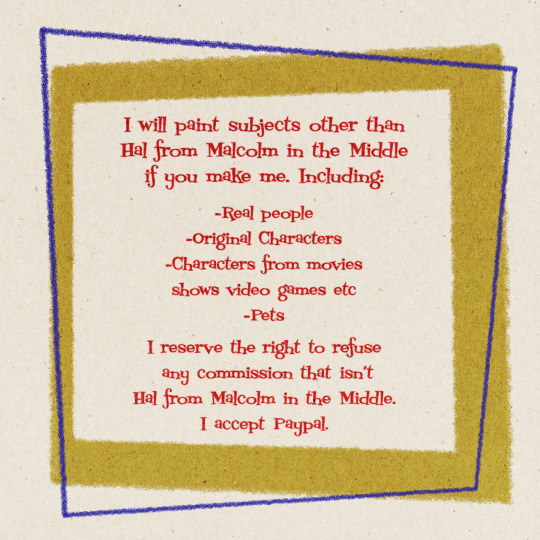 I will paint subjects other than
Hal from Malcolm in the Middle
if you make me. Including:
-Real people
-Original Characters
-Characters from movies
shows video games etc
-Pets
I reserve the right to refuse
any commission that isn't
Hal from Malcolm in the Middle.
I accept Paypal.